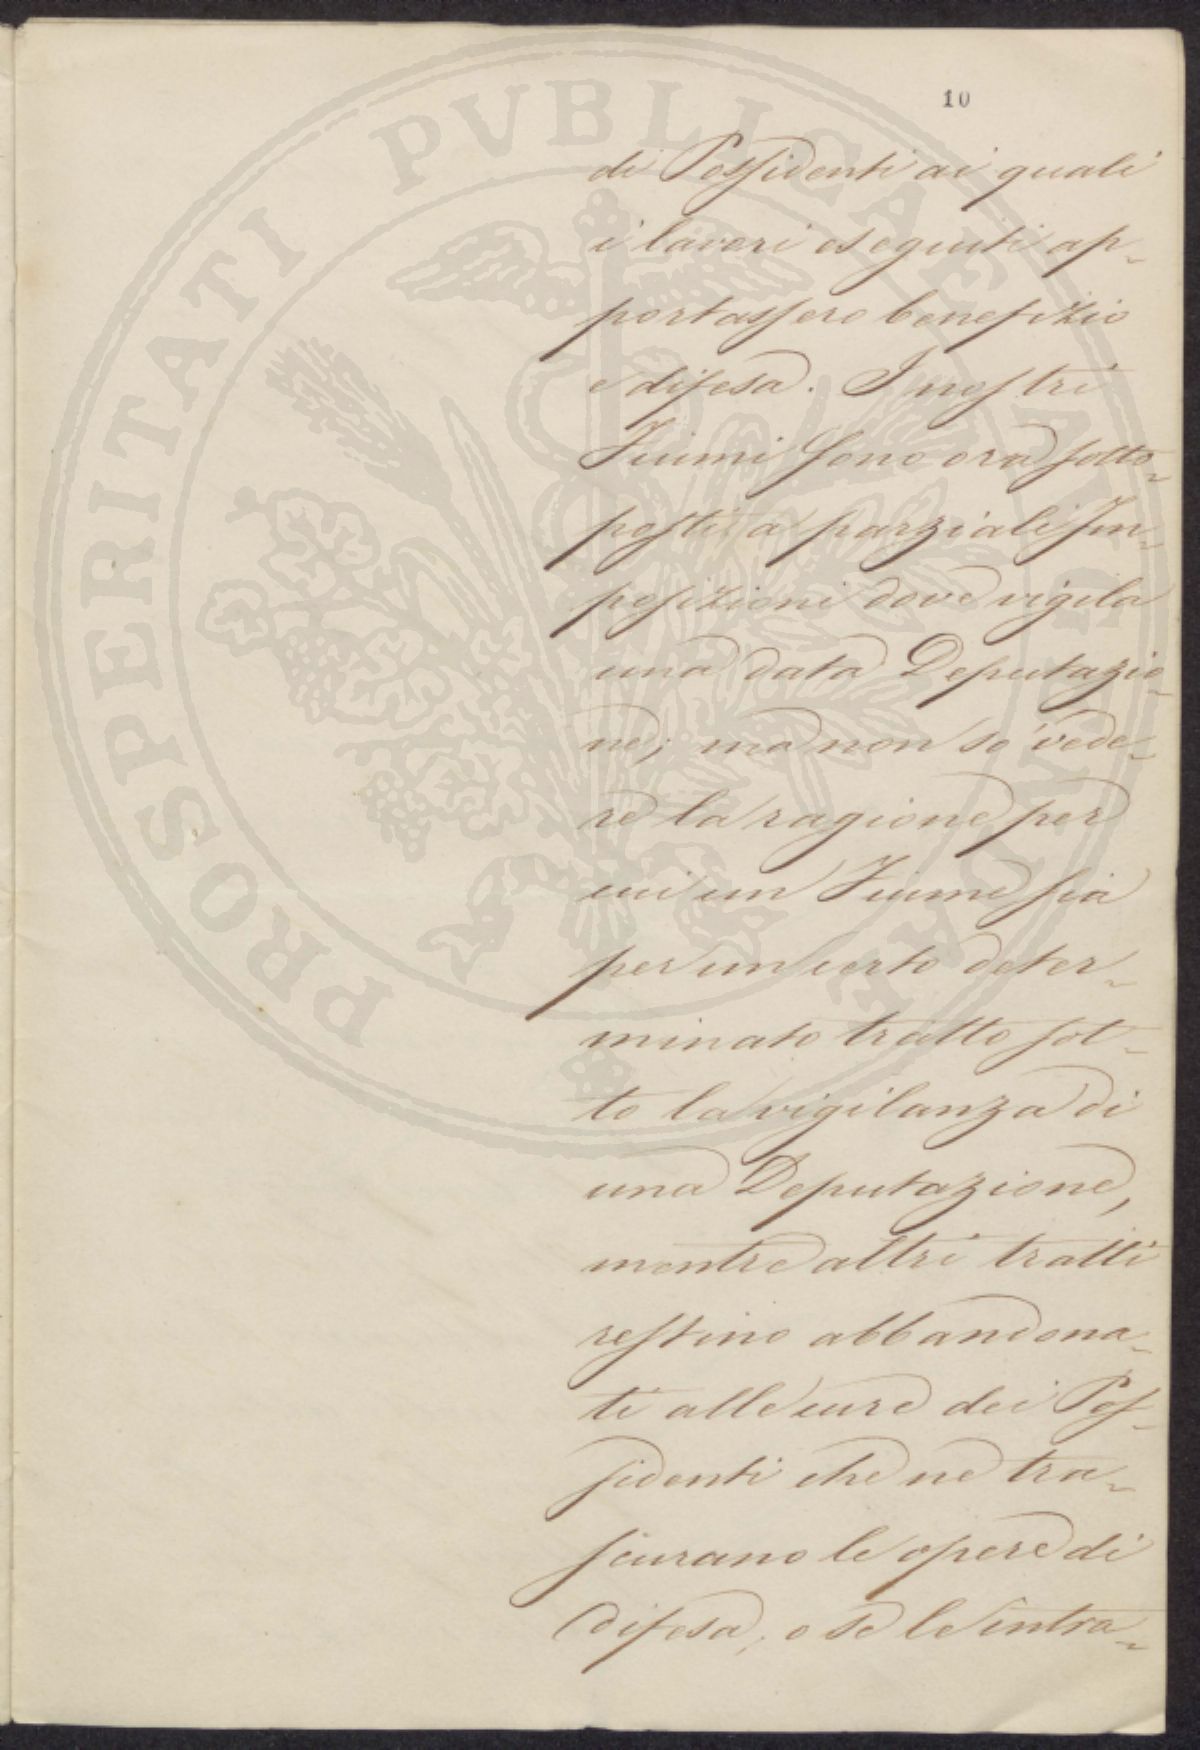 10
di Possidenti ai quali
i lavori eseguiti ap-
portassero benefizio
e difesa. I nostri
Fiumi sono ora sotto-
posti a parziali Im-
posizioni dove vigila
una data Deputazio-
ne; ma non so vede-
re la ragione per
cui un Fiume sia
per un certo deter-
minato tratto sot-
to la vigilanza di
una Deputazione,
mentre altri tratti
restino abbandona-
ti alle cure dei Pos-
sidenti che ne tra-
scurano le opere di
difesa, o se le intra-
PROSPERITATI PVBLICAE AVGENDAE